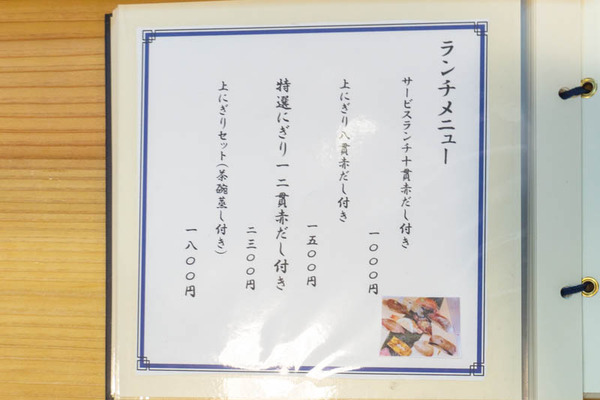 ランチメニュー
サービスランチ十貫赤だし付き
一〇〇〇円
上にぎり八貫赤だし付き
一五〇〇円
特選にぎり一二貫赤だし付き
二三〇〇円
上にぎりセット(茶碗蒸し付き)
一八〇〇円